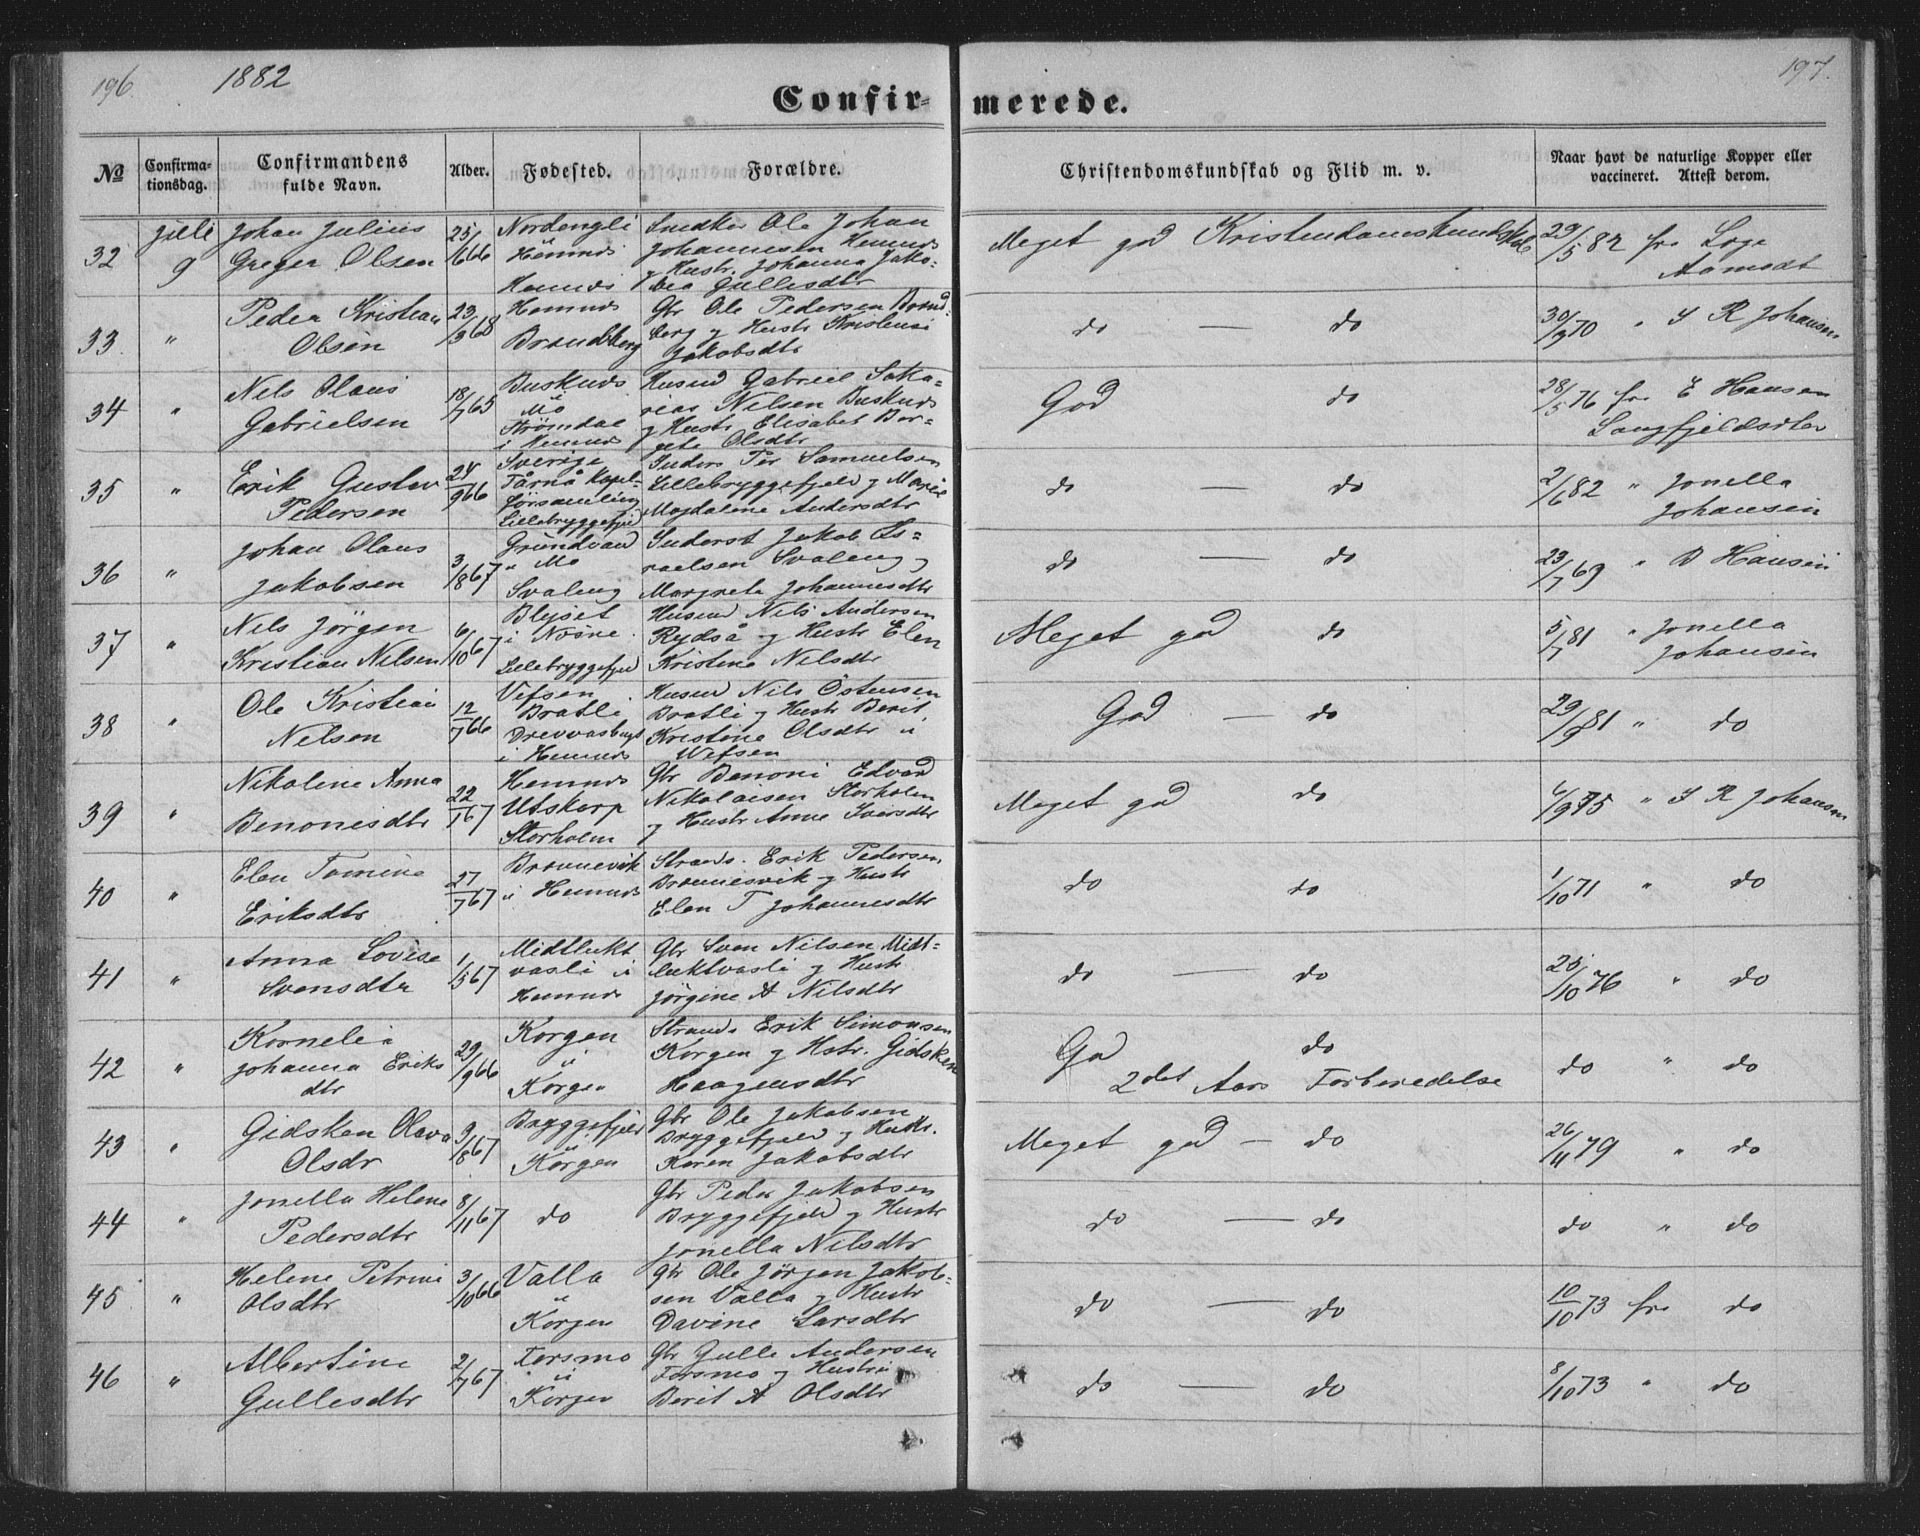 196. 1882
197.
Confir- merede.
№ Confirma-tionsdag. Confirmandens fulde Navn. Alder. Fødested. Forældre. Christendomskundskab og Flid m. v. Naar havt de naturlige Kopper eller vaccineret. Attest derom.
32 Juli 9 Johan Julius 25/1 66 Nordengli Snedker Ole Johan Meget god Kristendomskundskab 29/5 82 fra Loge
Greger Olsen Hemnes Johannesen Hemnes Aamodt
Hemnes og Hustr. Johanna Jako-
bea Gullesdtr
33. " Peder Kristian 23/3 68 Hemnes Gbr Ole Pedersen Brand- do — do 30/9 70 " I R Johansen
Olsen Brandberg berg og Hustr Kristensi
Jakobsdtr
34 " Nils Olaus 18/7 65 Busknes Husmd Gabriel Saka- God do 28/5 76 fra E Hansen
Gabrielsen Mo rias Nilsen Busknes Langfjeldsdlen
Strømdal og Hustr Elisabet Ber-
i Hemnes gete Olsdtr
35 " Erik Gustav 24/9 66 Sverige Inders Per Samuelsen do — do 2/6 82 " Jonella
Pedersen Tärnå Kapel- Lillebryggefjeld og Marie Johansen
församling Magdalene Andersdtr
Lillebryggefjeld
36 " Johan Olaus 3/8 67 Grundvand Inderst Jakob Is- do — do 23/7 69 " D Hansen
Jakobsen i Mo raelsen Svaleng og
Svaleng Margrete Johannesdtr
37 " Nils Jörgen 6/10 67 Blejset Husmd Nils Andersen Meget god do 5/7 81 " Jonella
Kristian Nilsen i Nesne Rydså og Hustr Elen Johansen
Lillebryggefjeld Kristine Nilsdtr
38 " Ole Kristian 12/7 66 Vefsen Husmd Nils Östensen God — do 29/9 81 " do
Nilsen Bratli Bratli og Hustr Berit
Drevvasbugt Kristine Olsdtr i
i Hemnes Wefsen
39 " Nikoline Anna 22/1 67 Hemnes Gbr Benoni Edvard Meget god do 6/9 75 " I R Johansen
Benonisdtr Utskarp Nikolaisen Storholm
Storholm og Hustr Anne Iversdtr
40 " Elen Tomine 27/7 67 Bravnesvik Strands. Erik Pedersen do do 1/10 71 " do
Eriksdtr i Hemnes Bravnesvik og Hustr
Elen T Johannesdtr
41 " Anna Lovise 1/5 67 Midtlukt Gbr Sven Nilsen Midt- do — do 25/10 76 " do
Svensdtr vasli i luktvasli og Hustr.
Hemnes Jörgine A Nilsdtr
42 " Kornelia 29/9 66 Korgen Strands Erik Simonsen God do do " do
Johanna Eriks i Korgen og Hstr. Gidsken 2det Aars Forberedelse
dtr Korgen Haagensdtr
43 " Gidsken Olava 9/8 67 Bryggefjeld Gbr Ole Jakobsen Meget god — do 26/11 79 " do
Olsdr i Korgen Bryggefjeld og Hustr.
Karen Jakobsdtr
44 " Jonella Helene 8/11 67 do Gbr Peder Jakobsen do — do do " do
Pedersdtr Bryggefjeld og Hustr
Jonella Nilsdtr
45 " Helene Petrine 3/10 66 Valla Gbr Ole Jörgen Jakob- do — do 10/10 73 fra do
Olsdtr i sen Valla og Hustr
Korgen Davine Larsdtr
46 " Albertine 2/7 67 Forsmo Gbr Gulle Andersen do — do 8/10 73 " do
Gullesdtr i Forsmo og Hustru
Korgen Berit A Olsdtr